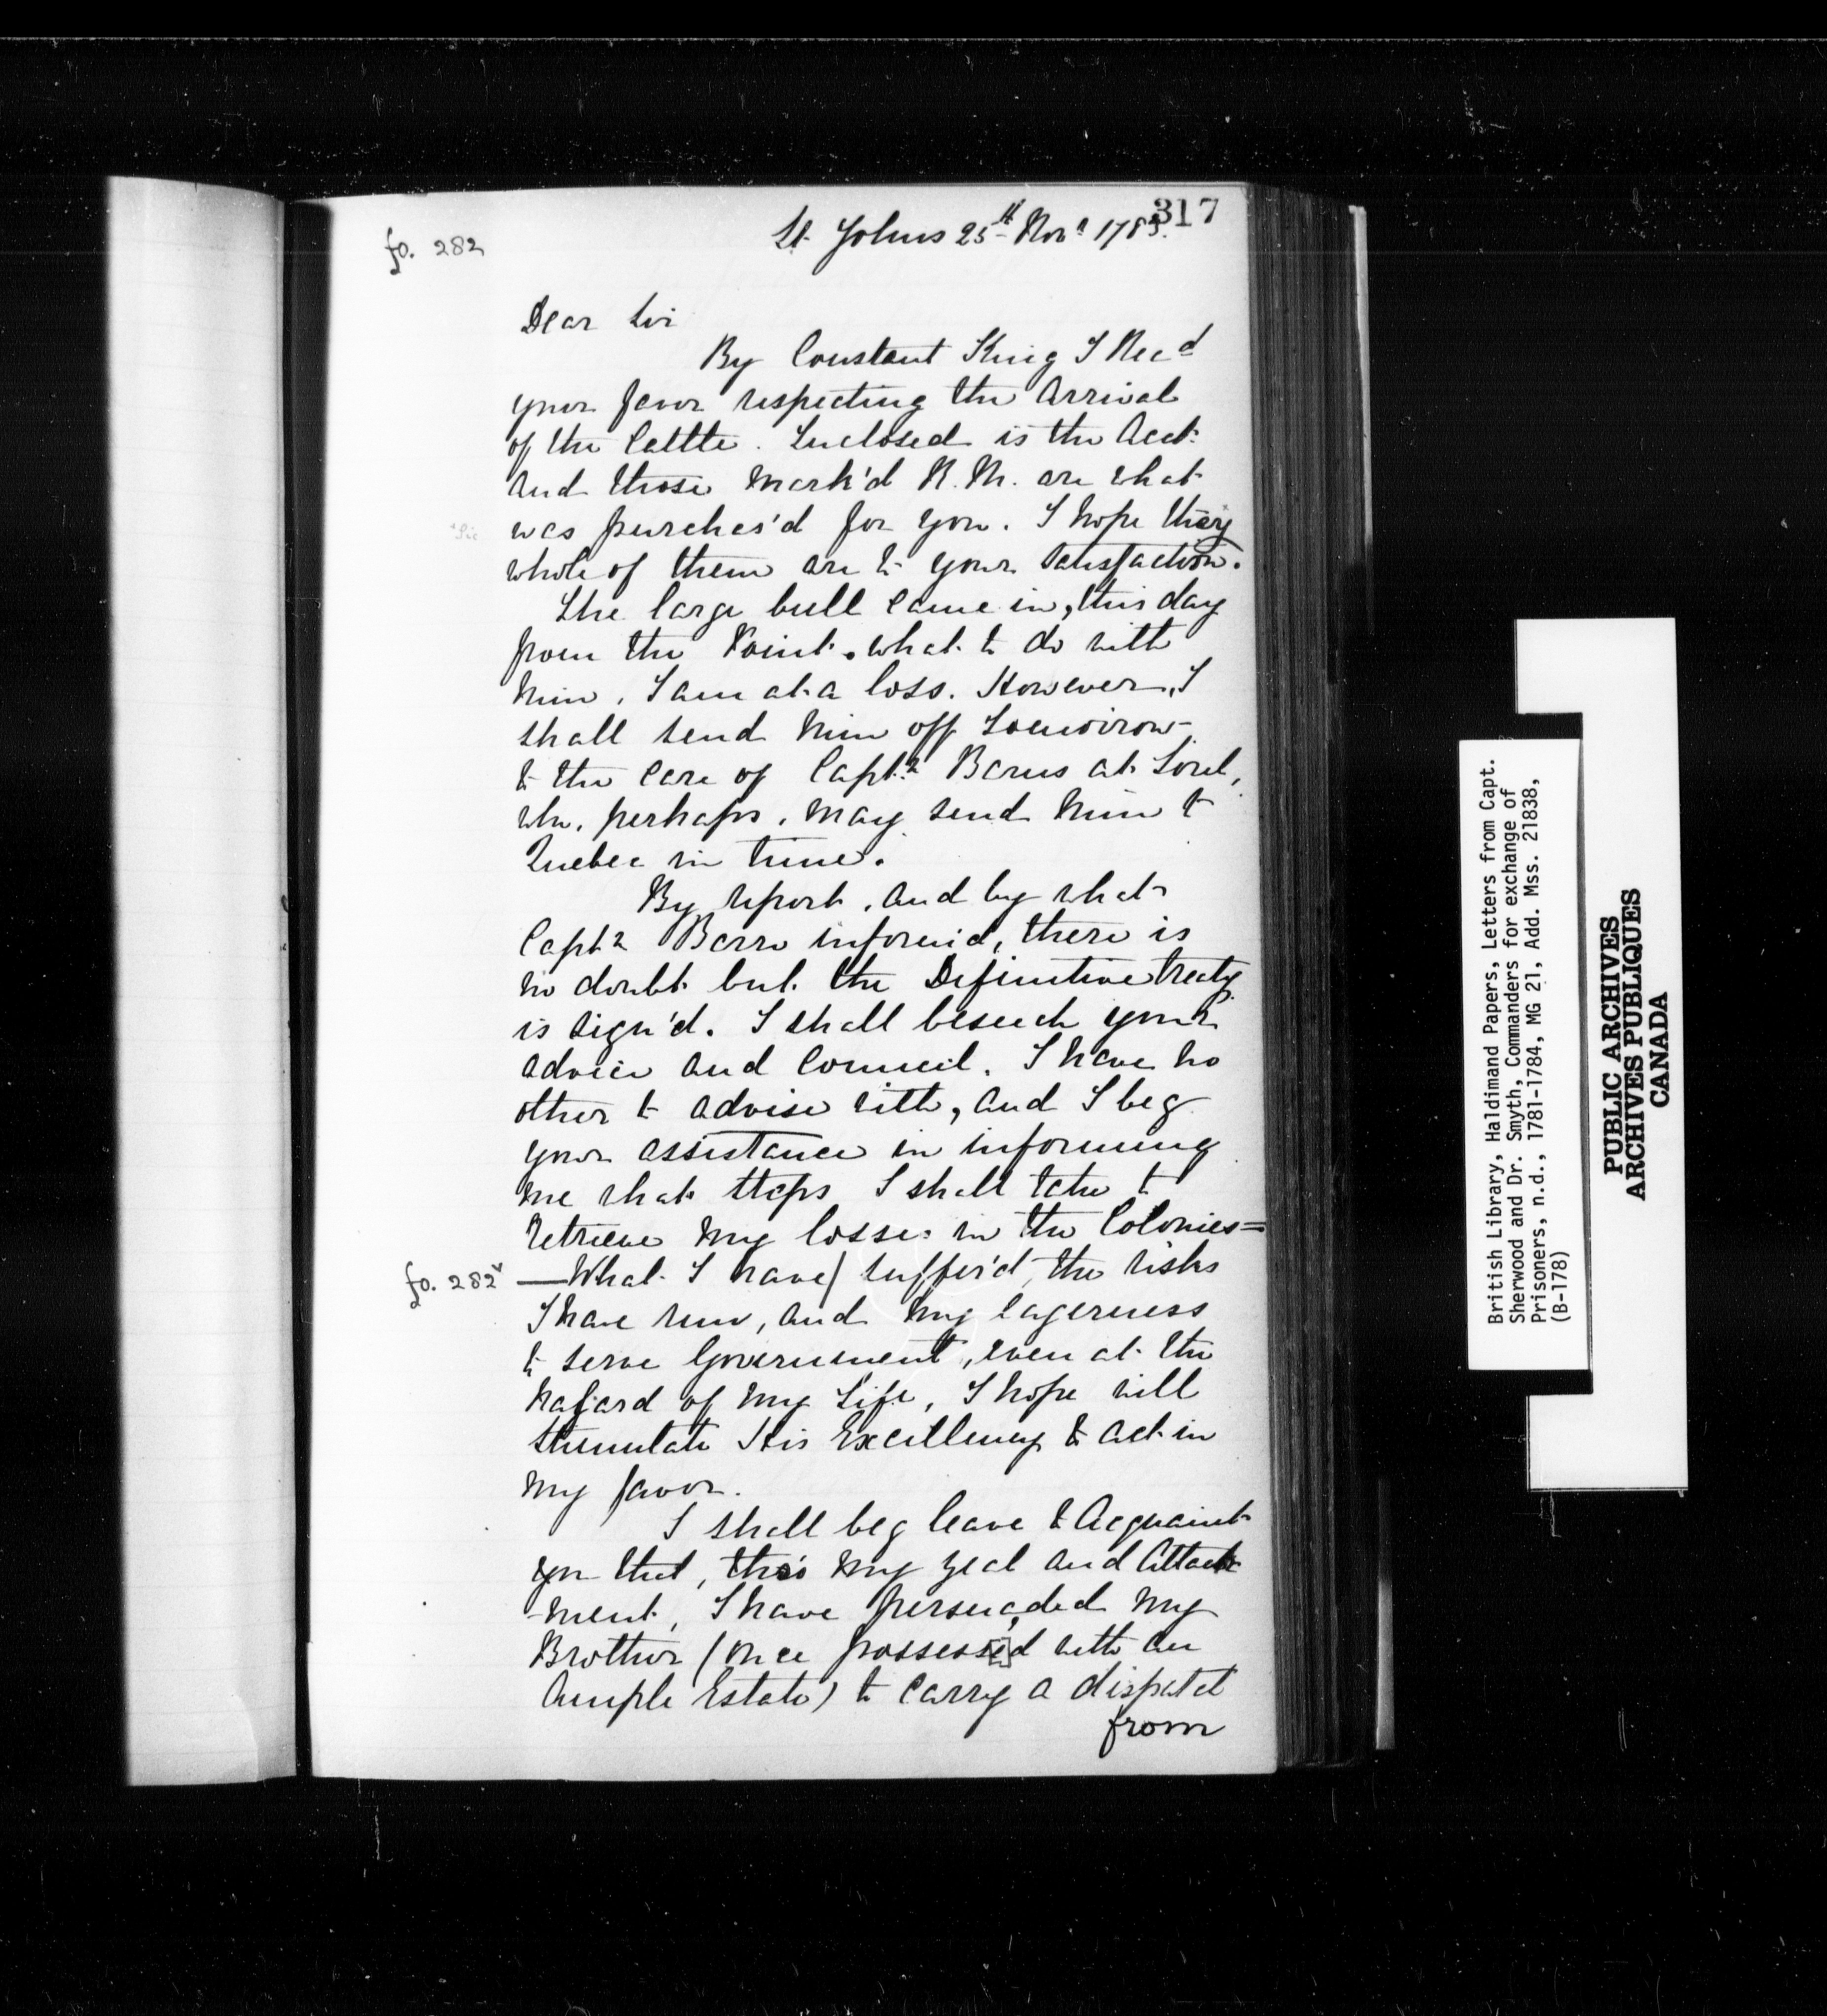 317
fo. 282
St. Johns 25th Novr 1783.
Dear Sir
By Constant King I Recd
your favor respecting the Arrival
of the Cattle. Inclosed is the Acct.
And those Mark'd R. M. are what
was purches'd for you. I hope they
whole of them are to your Satisfaction.
The large bull came in, this day
from the Point. what to do with
him, I am at a loss. However, I
shall send him off Tomorrow
to the Care of Captn Barns at Sorel,
who, perhaps, may send him to
Quebec in time.
By report, and by what
Captn Barre inform'd, there is
no doubt but the Definitive treaty
is sign'd. I shall beseech your
advice and Council. I have no
other to advise with, and I beg
your assistance in informing
me what steps I shall take to
retrieve my losses in the Colonies=
fo. 282v
—What I have/ suffer'd, the risks
I have run, and my eagerness
to serve Government, even at the
hazard of my Life, I hope will
stimulate His Excellency to act in
my favor.
I shall beg leave to Acquaint
you that, thro' my zeal and Attach-
-ment, I have persuaded my
Brother (once possess[e]d with an
Ample Estate) to carry a dispatch
from
British Library, Haldimand Papers, Letters from Capt.
Sherwood and Dr. Smyth, Commanders for exchange of
Prisoners, n.d., 1781-1784, MG 21, Add. Mss. 21838,
(B-178)
PUBLIC ARCHIVES
ARCHIVES PUBLIQUES
CANADA